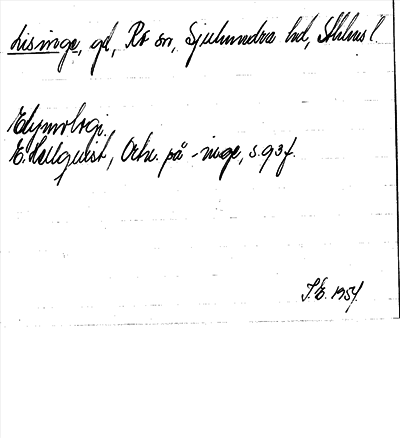 Lisinge, gd, Rö sn, Sjuhundra hd, Sthlms l.
Etymologi.
E. Hellquist, Ortn. på -inge, s. 93 f.
S.E. 1954